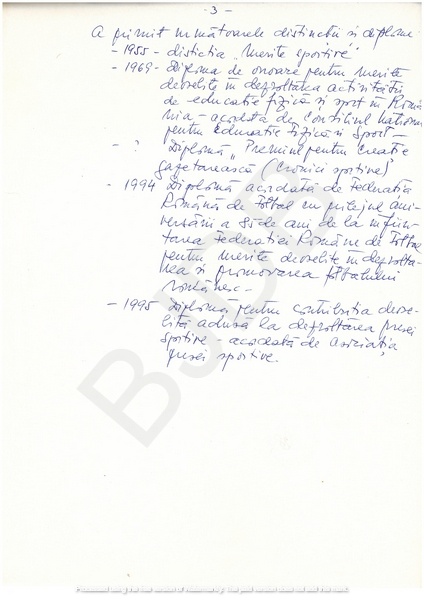 - 3 -
A primit următoarele distincții și diplome
- 1955 - distictia „Merite sportive"
- 1969 - Diploma de onoare pentru merite
deosebite în dezvoltarea activității
de educatie fizică si sport în Româ
nia - acordată de Consiliul National
pentru Educatie Fizică si Sport -
- ? Diplomă „Premiul pentru creatie
gazetărească (Cronici sportive)"
- 1994 Diplomă acordată de Federatia
Română de Fotbal cu prilejul ani-
versării a 85 de ani de la înfiin-
tarea Federatiei Române de Fotbal
pentru merite deosebite în dezvolta-
rea si promovarea fotbalului
românesc -
- 1995 Diplomă pentru contributia deose-
bită adusă la dezvoltarea presei
sportive acordată de Asociatia
presei sportive.